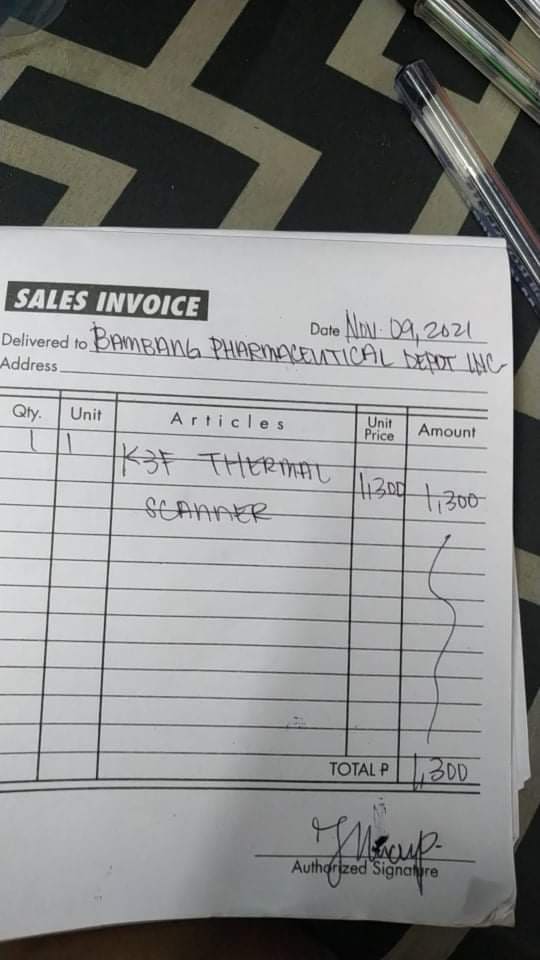 SALES INVOICE
Date Nov. 09, 2021
Delivered to BAMBANG PHARMACEUTICAL DEPOT INC
Address
Qty. Unit Articles Unit Price Amount
1 1 K3F THERMAL
SCANNER 1,300 1,300
TOTAL P 1,300
Authorized Signature